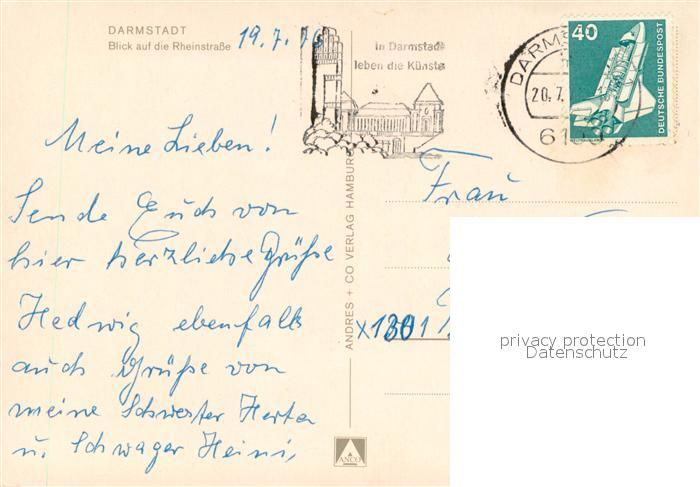 DARMSTADT
Blick auf die Rheinstraße
19.7.76
in Darmstadt
leben die Künste
DARMS
20.7.
61
40
DEUTSCHE BUNDESPOST
Meine Lieben!
Sende Euch von
hier herzliche Grüße
Hedwig ebenfalls
auch Grüße von
meine Schwester Herta
u. Schwager Heini,
ANDRES + CO VERLAG HAMBURG
ANCO
Frau
privacy protection
Datenschutz